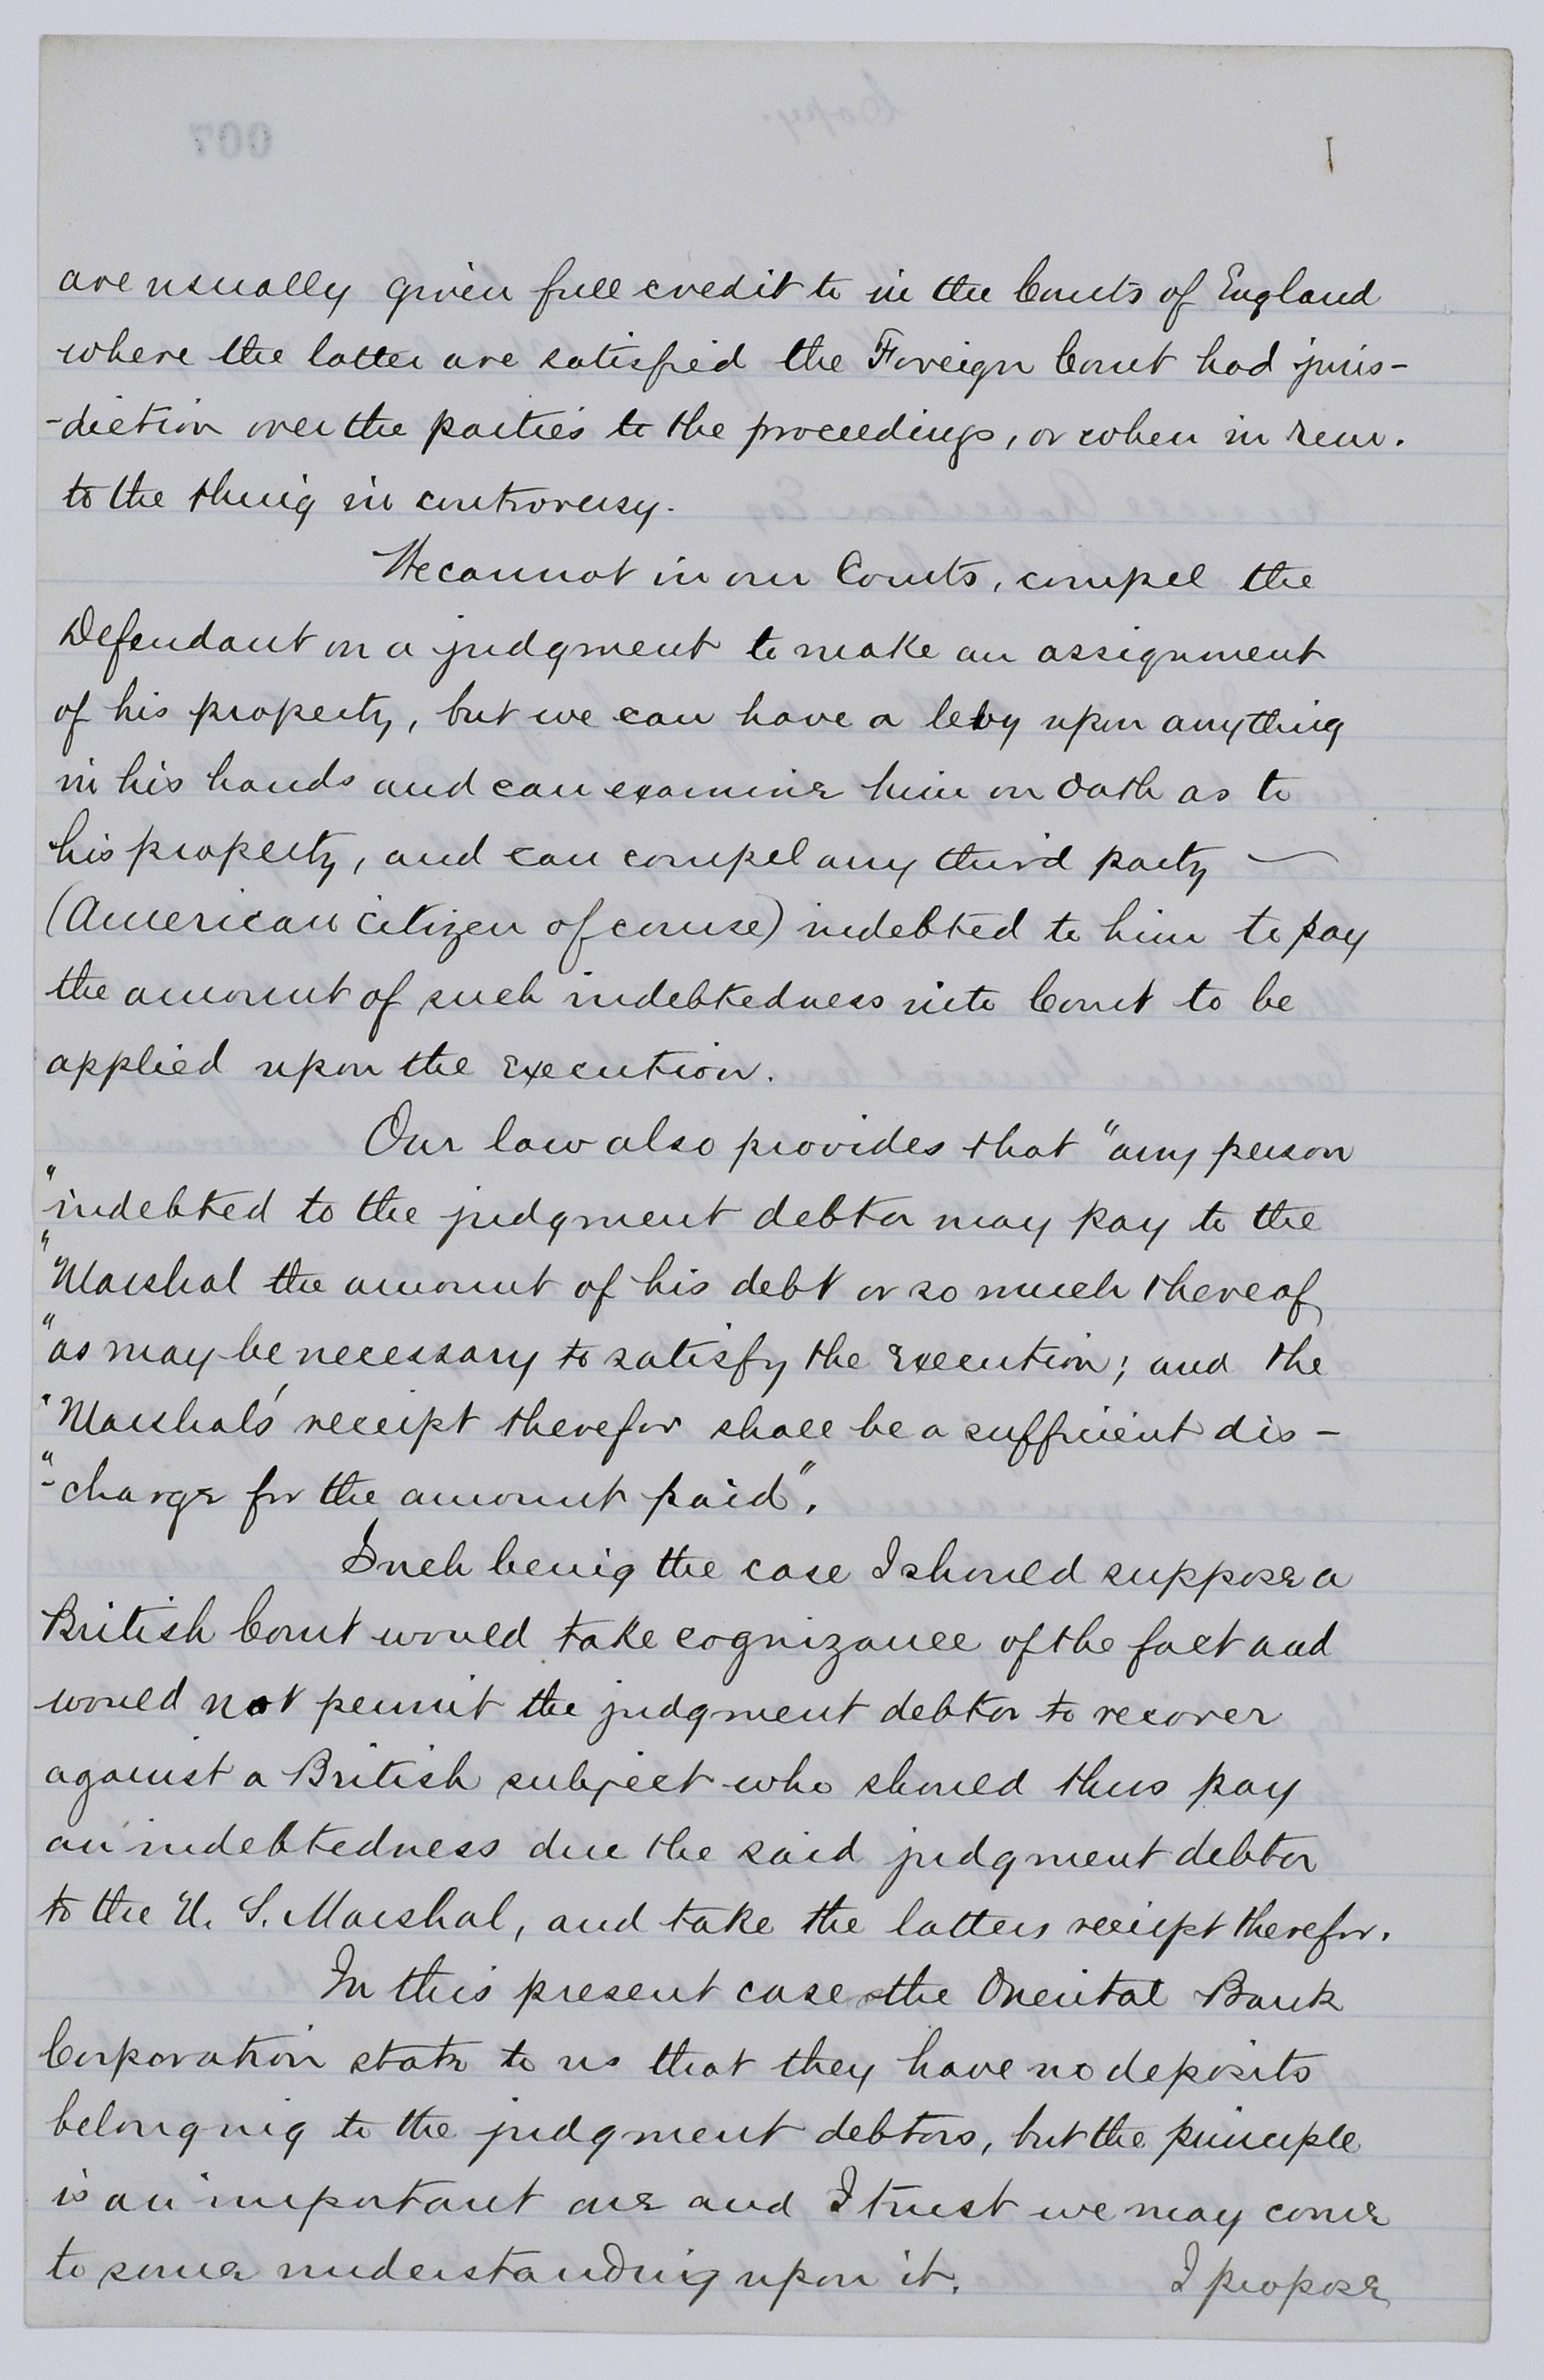 are usually given full credit to in the Courts of England
where the latter are satisfied the Foreign Court had juris-
-diction over the parties to the proceedings, or when in rem.
to the thing in controversy.
We cannot in our Courts, compel the
Defendant on a judgment to make an assignment
of his property, but we can have a levy upon anything
in his hands and can examine him on oath as to
his property, and can compel any third party
(American citizen of course) indebted to him to pay
the amount of such indebtedness into Court to be
applied upon the execution.
Our law also provides that "any person
"indebted to the judgment debtor may pay to the
"Marshal the amount of his debt or so much thereof
"as may be necessary to satisfy the execution; and the
"Marshal's receipt therefor shall be a sufficient dis-
"-charge for the amount paid".
Such being the case I should suppose a
British Court would take cognizance of the fact and
would not permit the judgment debtor to recover
against a British subject who should thus pay
an indebtedness due the said judgment debtor
to the U. S. Marshal, and take the latters receipt therefor.
In this present case the Oriental Bank
Corporation state to us that they have no deposits
belonging to the judgment debtors, but the principle
is an important one and I trust we may come
to some understanding upon it. I propose